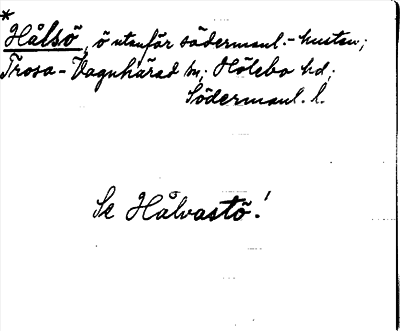 *
Hålsö, ö utanför södermanl.-kusten;
Trosa-Vagnhärad sn; Hölebo hd;
Södermanl. l.
Se Hålvastö!